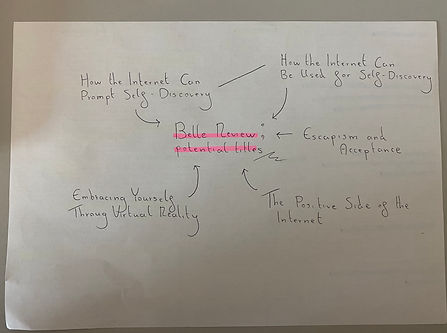 How the Internet Can
Prompt Self-Discovery
How the Internet Can
Be Used for Self-Discovery
Belle Review:
potential titles
Escapism and
Acceptance
Embracing Yourself
Throug Virtual Reality
The Positive Side of the
Internet